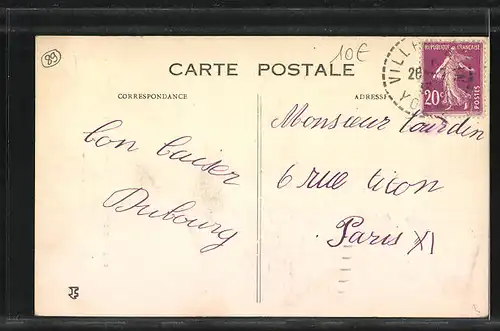 89
10€
CARTE POSTALE
CORRESPONDANCE
ADRESSE
REPUBLIQUE FRANÇAISE
20c
POSTES
VILL
26
YO
bon baiser
Dubourg
Monsieur Tourdin
6 rue Sicon
Paris XI